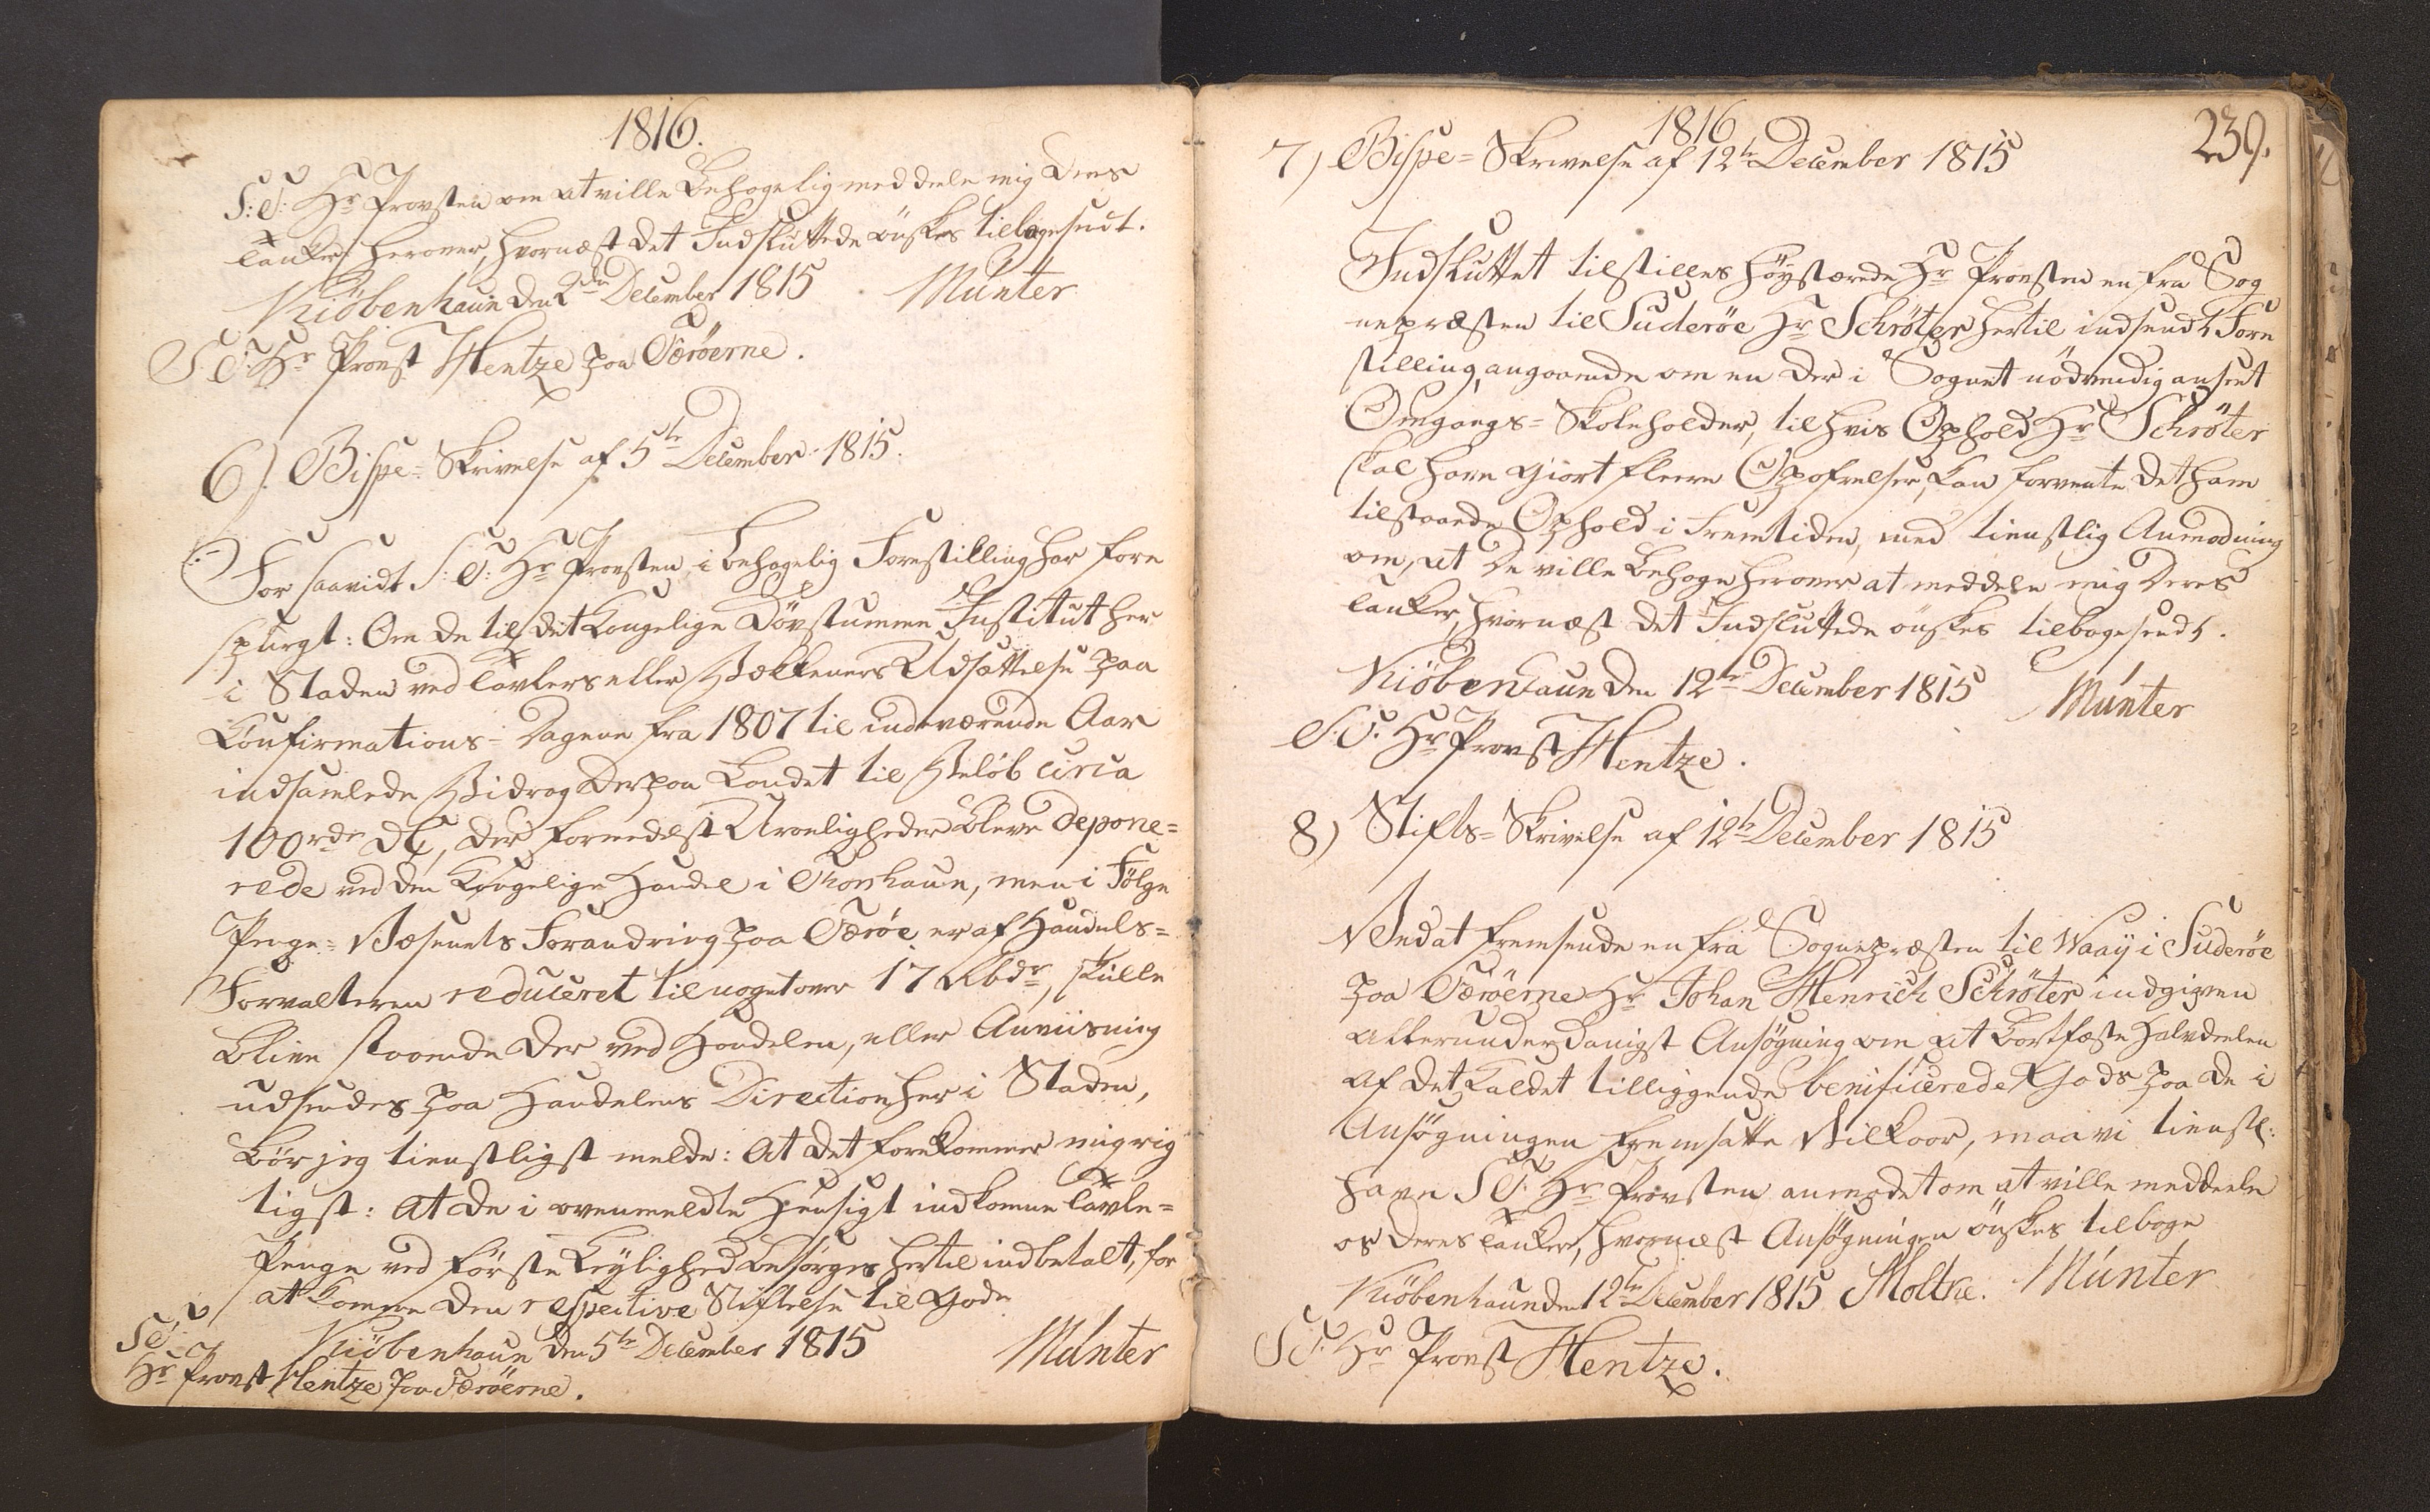 1816.
S: T: Hr Provsten om at ville behagelig meddele mig Deres
Tanker herover, hvornæst det Indsluttede önskes tilbagesendt.
Kiöbenhaun den 2den December 1815 Münter
S. T. Hr Provst Hentze paa Færöerne.
6) Bispe-Skrivelse af 5te December 1815.
For saavidt S: T: Hr Provsten i behagelig Forestilling har fore
spurgt: Om de til det Kongelige Dövstumme Institut her
i Staden ved Tavlers eller Bækkeners Udsættelse paa
Confirmations-Dagene fra 1807 til indeværende Aar
indsamlede Bidrag der paa Landet til Beløb circa
100rdr DC, der formedelst Uroeligheder bleve depone=
rede ved den Kongelige Handel i Thorshaun, men i Fölge
Penge-Væsenets Forandring paa Færöe er af Handels=
Forvalteren reduceret til noget over 17 Rbdr, skulle
blive staaende der ved Handelen, eller Anviisning
udsendes paa Handelens Direction her i Staden,
bör jeg tienstligst melde: at det forekommer mig rig
tigst: at de i ovenmeldte Hensigt indkomne Tavle=
Penge ved förste Leylighed besörges hertil indbetalt, for
at komme den respective Stiftelse til Gode
Kiöbenhaun den 5te December 1815 Münter
S T.
Hr Provst Hentze paa Færöerne.
1816
239.
7) Bispe-Skrivelse af 12te December 1815
Indsluttet tilstilles Höystærede Hr Provsten en fra Sog
nepræsten til Suderöe Hr Schröter hertil indsendt Fore
stilling, angaaende om en der i Sognet nödvendig anseet
Omgangs-Skoleholder, til hvis Ophold Hr Schröter
skal have giort fleere Opofrelser, kan forvente det ham
tilstaaede Ophold i Fremtiden, med tienstlig Anmodning
om, at De ville behage herover at meddele mig Deres
Tanker, hvornæst det Indsluttede önskes tilbagesendt.
Kiöbenhaun den 12te December 1815 Münter
S. T. Hr Provst Hentze.
8) Stifts-Skrivelse af 12te December 1815
Ved at fremsende en fra Sognepræsten til Waaij i Suderöe
paa Færöerne Hr Johan Henrich Schröter indgiven
allerunderdanigst Ansögning om at bortfæste Halvdeelen
af det Kaldet tilliggende benificerede Gods paa de i
Ansögningen fremsatte Vilkoor, maa vi tienstl:
have S T. Hr Provsten anmodet om at ville meddeele
os Deres Tanker, hvornæst Ansögningen önskes tilbage
Kiöbenhaun den 12te December 1815 Moltke. Münter
S T. Hr Provst Hentze.